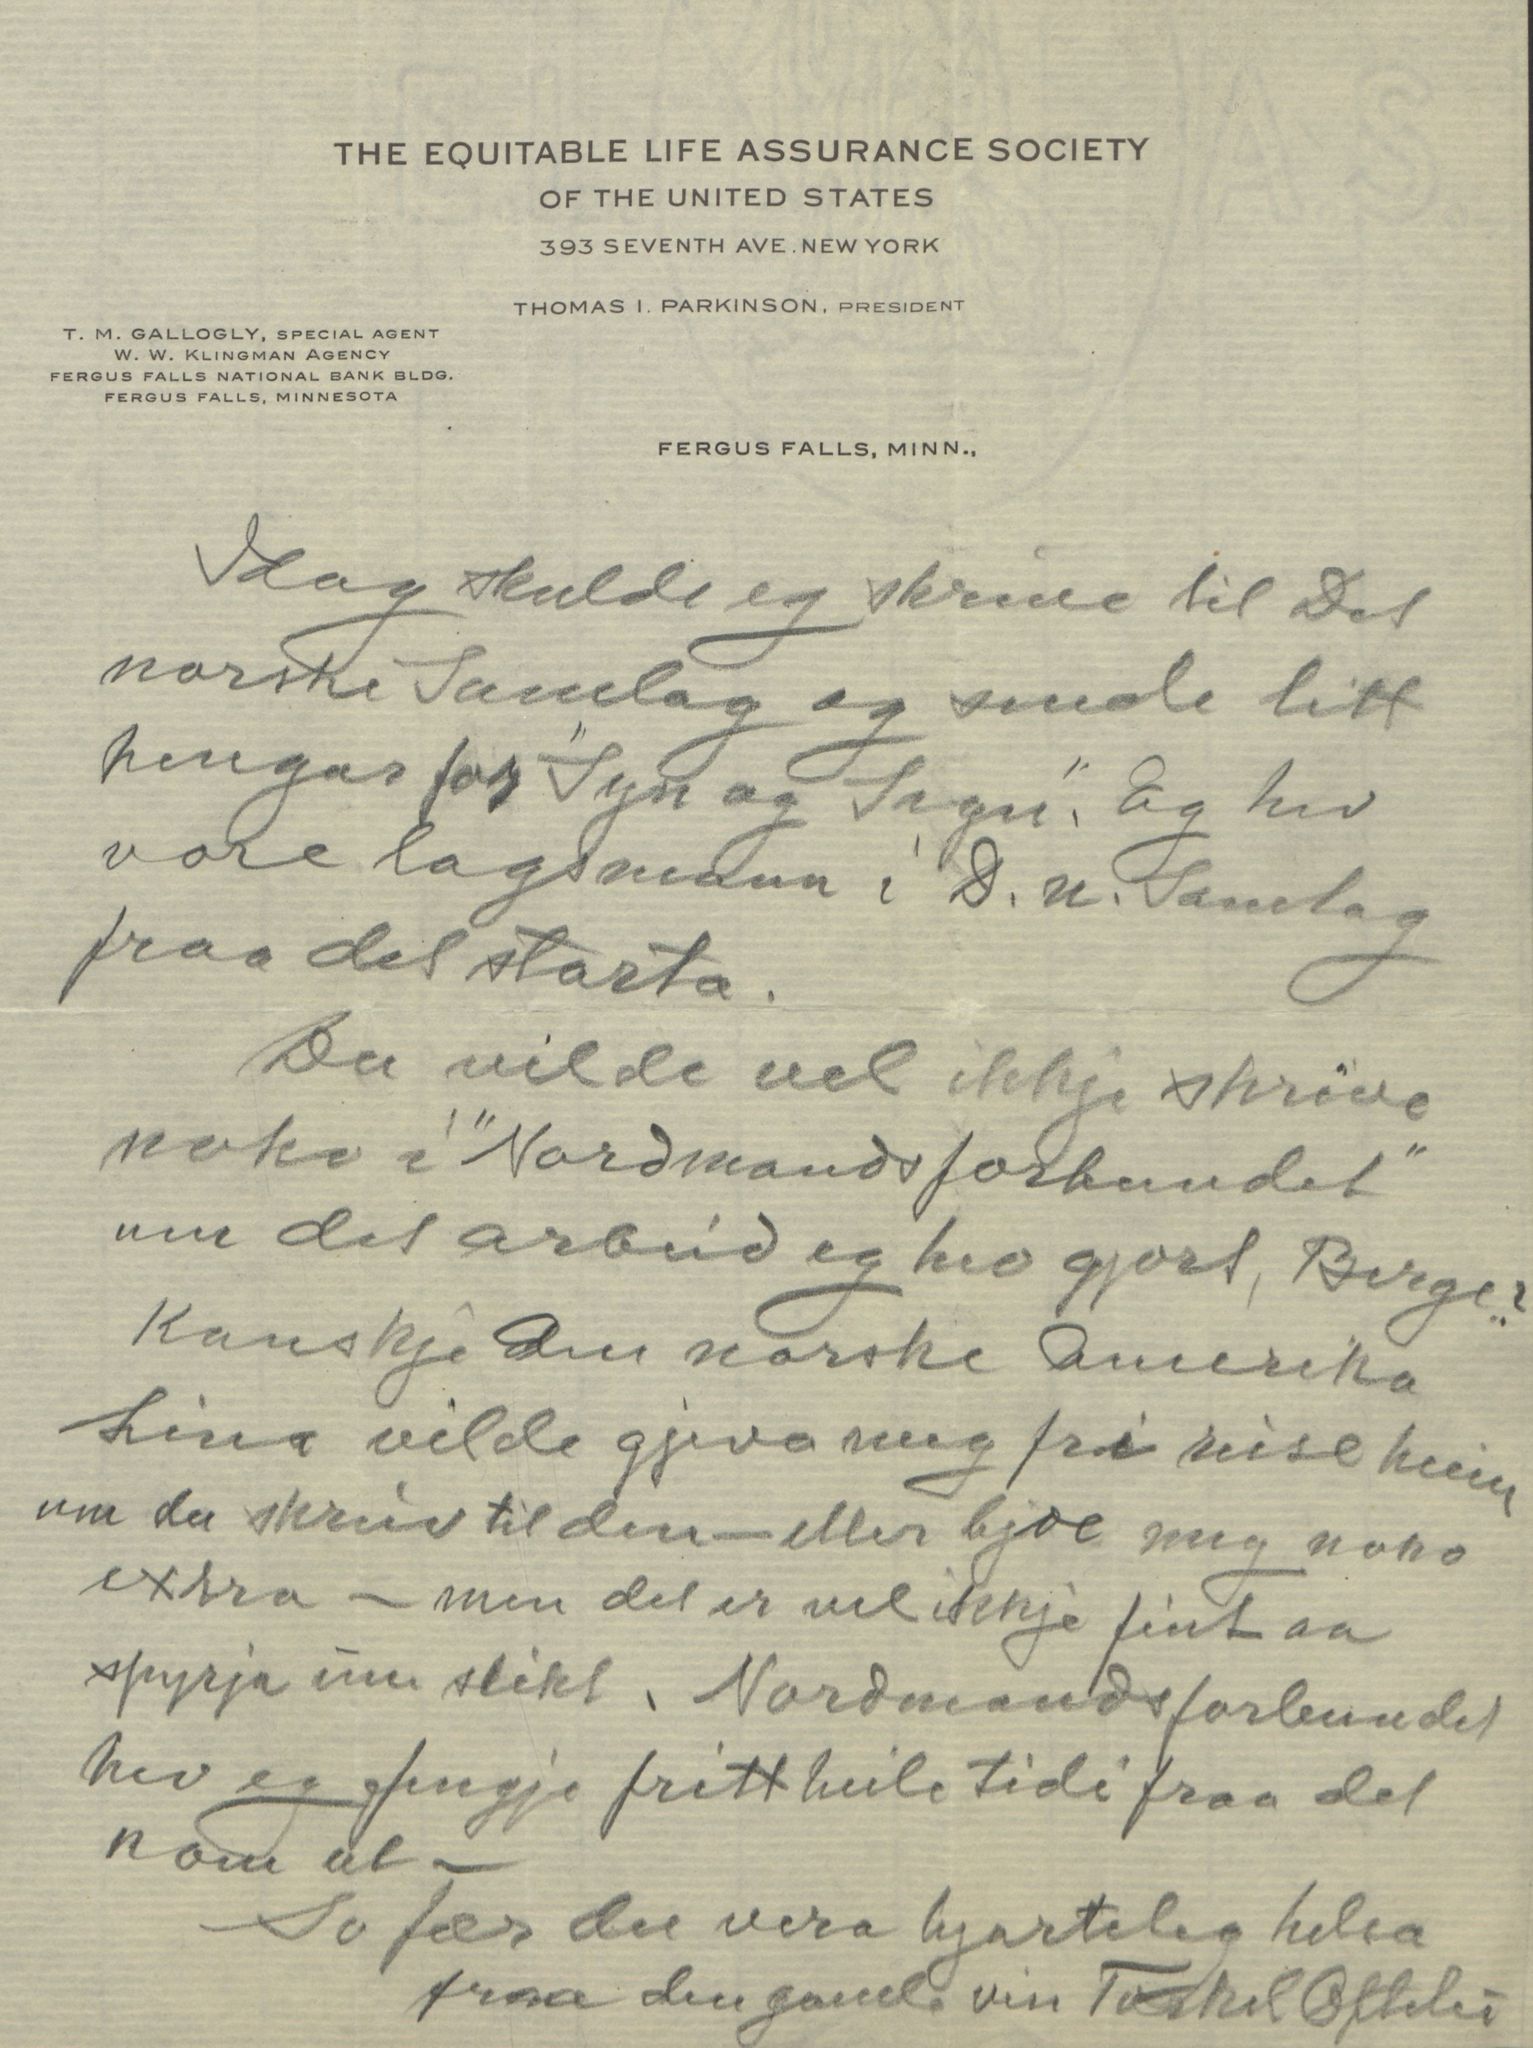 THE EQUITABLE LIFE ASSURANCE SOCIETY
OF THE UNITED STATES
393 SEVENTH AVE. NEW YORK
THOMAS I. PARKINSON, PRESIDENT
T. M. GALLOGLY, SPECIAL AGENT
W. W. KLINGMAN AGENCY
FERGUS FALLS NATIONAL BANK BLDG.
FERGUS FALLS, MINNESOTA
FERGUS FALLS, MINN.,
Idag skulde eg skrive til Det
norske Samlag og sende litt
pengar for "Syn og Segn". Eg hev
vore lagsmann i D. n. Samlag
fraa det starta.
Du vilde vel ikkje skrive
noko i "Nordmandsforbundet"
um det arbeid eg hev gjort, Berge?
Kanskje Den norske Amerika
Lina vilde gjeva meg fri reise heim
um du skreiv til den — eller bjoe meg noko
extra — men det er vel ikkje fint aa
spyrja um slikt. Nordmandsforbundet
hev eg fengje fritt heile tidi fraa det
kom ut —
So fær du vera hjarteleg helsa
fraa den gamle ven Torkel Oftelie